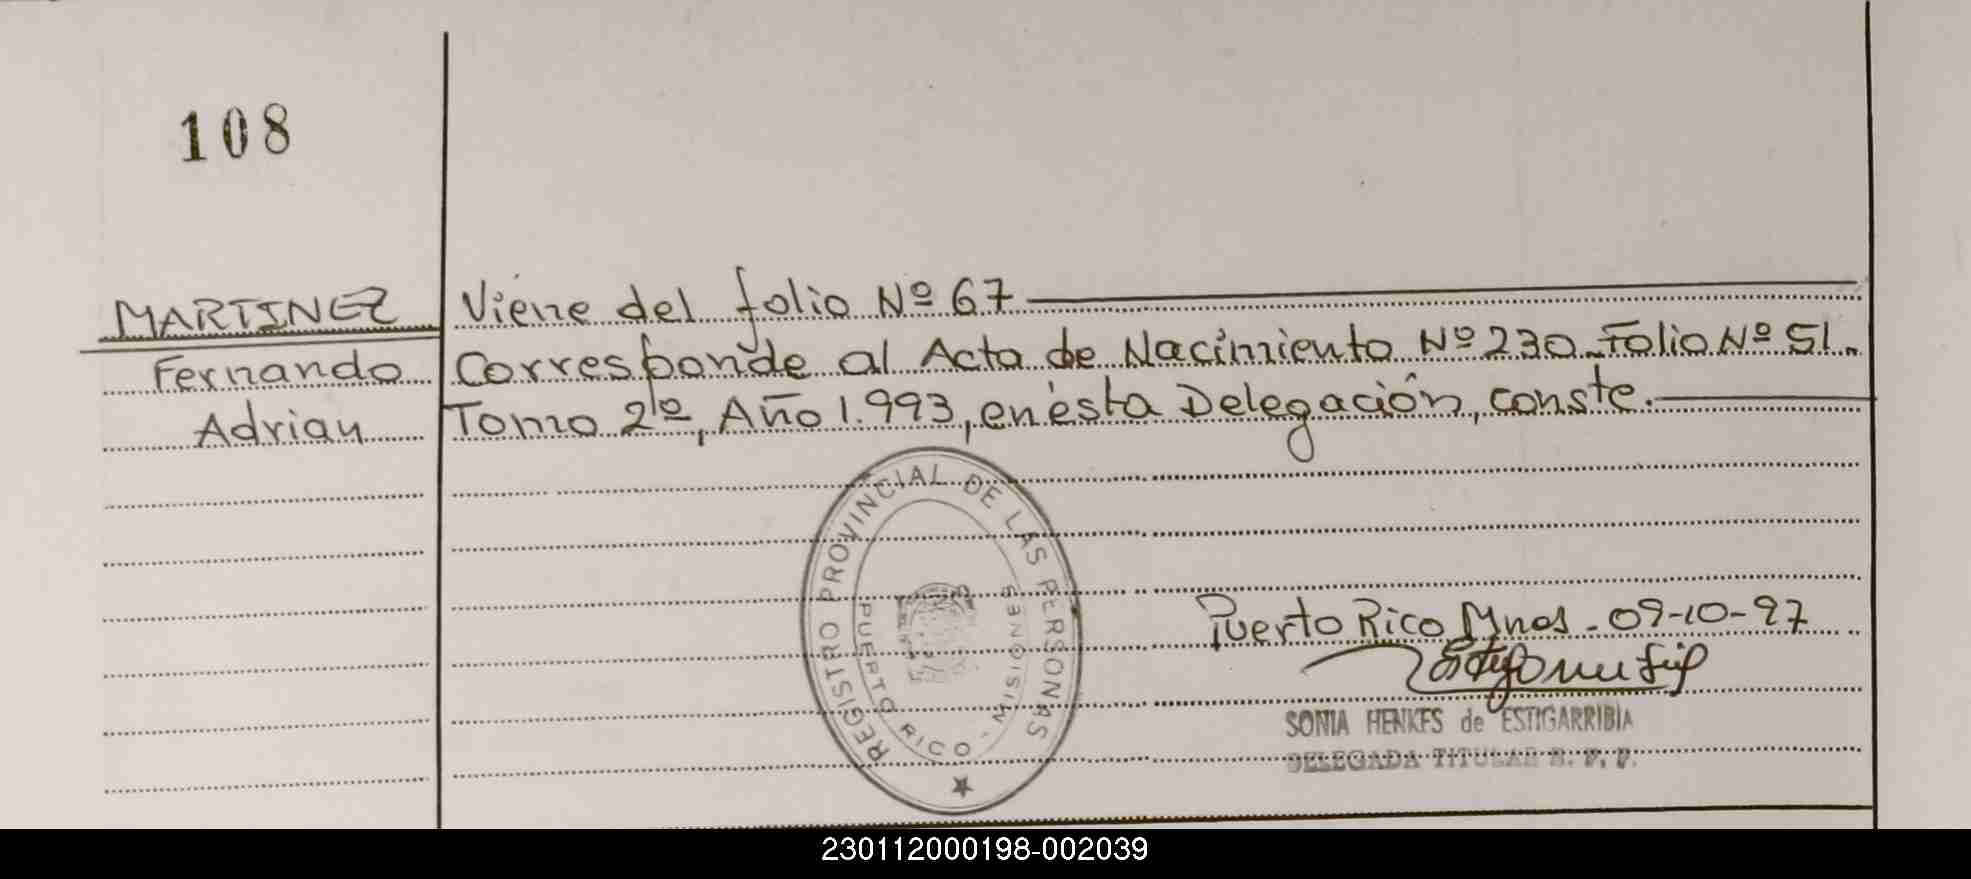 108
MARTINEZ
Fernando
Adrian
Viene del folio Nº 67
Corresponde al Acta de Nacimiento Nº 230. Folio Nº 51.
Tomo 2º, Año 1.993, en ésta Delegación, conste.
REGISTRO PROVINCIAL DE LAS PERSONAS
PUERTO RICO - MISIONES
Puerto Rico Mnes. 09-10-97
SONIA HENKES de ESTIGARRIBIA
DELEGADA TITULAR R. P. P.
230112000198-002039